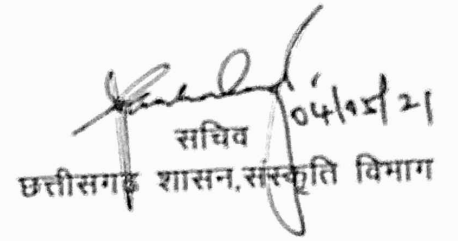 04/05/21
सचिव
छत्तीसगढ़ शासन,संस्कृति विभाग